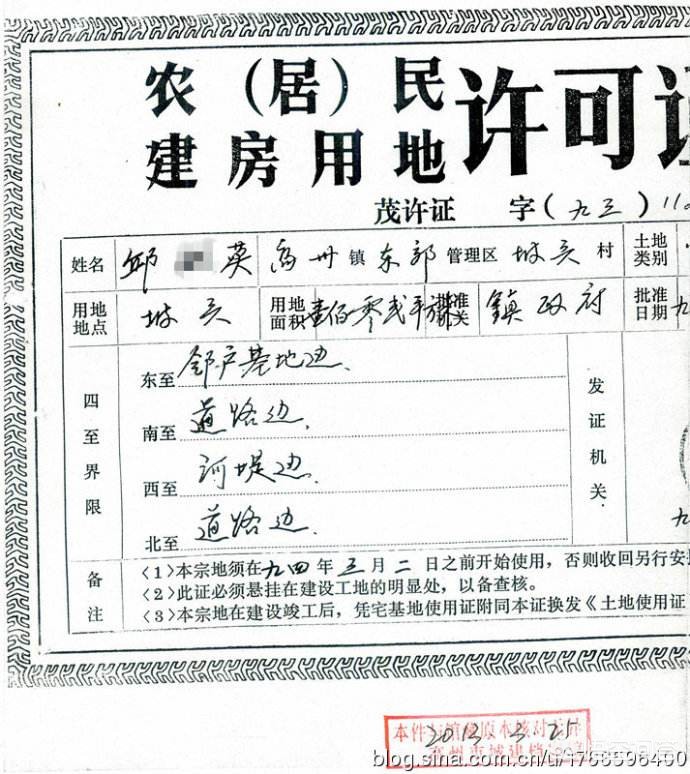 农（居）民
建房用地 许可
茂许证 字（九三）
姓名 邱 英 高州镇东郊管理区坡头村 土地类别
用地地点 坡头 用地面积 壹佰零贰平 批准 关 镇政府 批准日期 九
四至界限
东至 邻户基地边
南至 道路边
西至 河堤边
北至 道路边
发证机关
九
备注
〈1〉本宗地须在九四年三月二日之前开始使用，否则收回另行安
〈2〉此证必须悬挂在建设工地的明显处，以备查核。
〈3〉本宗地在建设竣工后，凭宅基地使用证附同本证换发《土地使用证
本件与馆藏原本核对无
高州市城建档
blog.sina.com.cn/u/1766596400